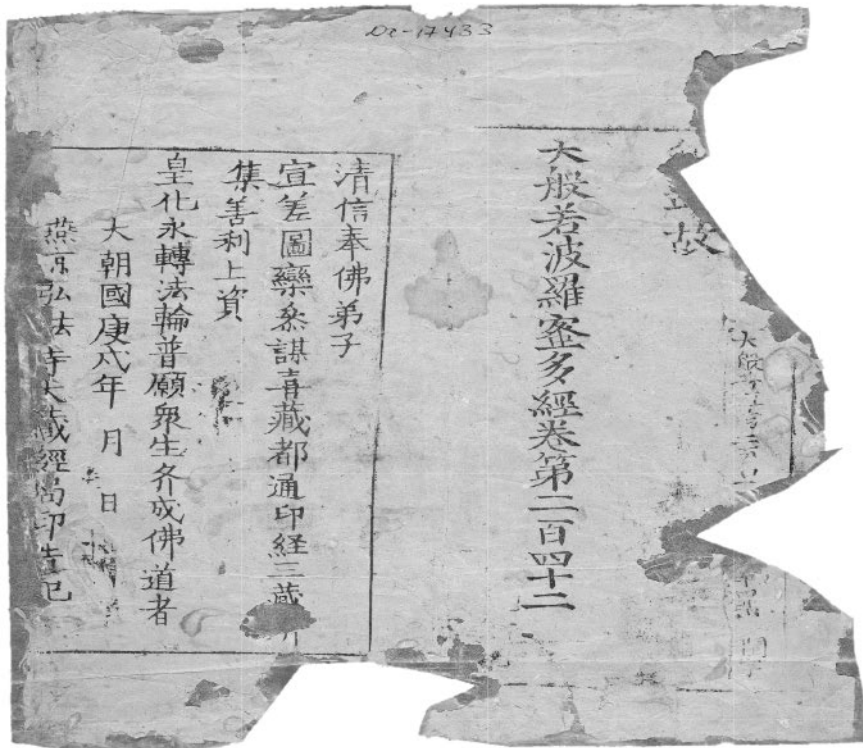 Dx-17433
故
大般若波羅蜜多經卷第二百四十二
清信奉佛弟子
宣差圖欒叅謀青藏都通印経三藏
集善利上資
皇化永轉法輪普願衆生齐成佛道者
大朝國庚戌年 月 日
燕京弘法寺大藏經局印造記